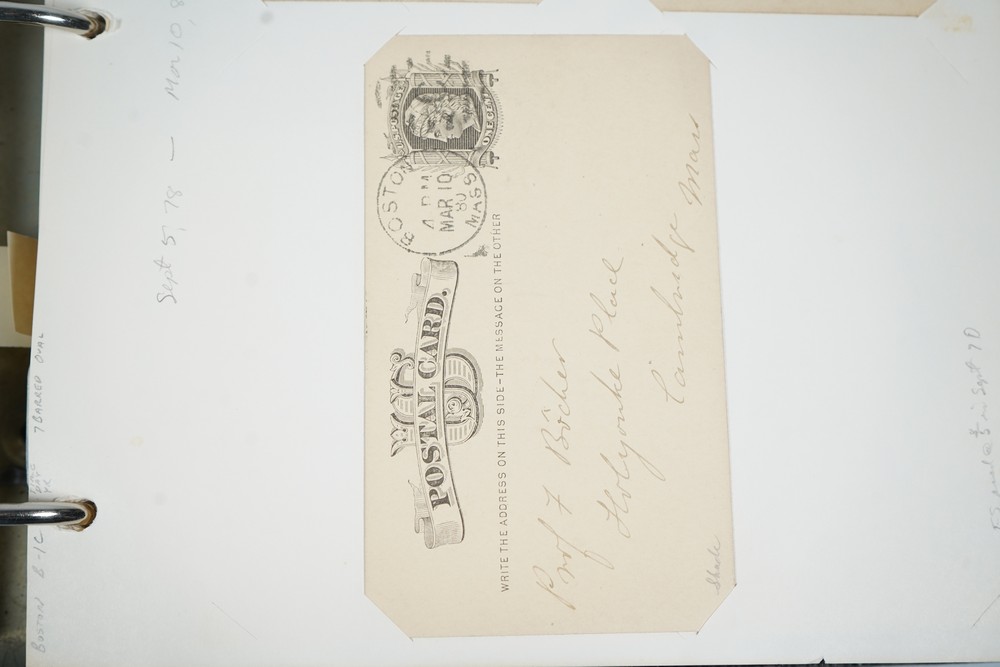 BOSTON B-1C 7 BARRED OVAL
Sept 5, 78 — Mar 10, 8
U.S. POSTAGE
ONE CENT
BOSTON
MAR 10
80
MASS
US
POSTAL CARD.
WRITE THE ADDRESS ON THIS SIDE-THE MESSAGE ON THE OTHER
Prof F Bôcher
Holyouke Place
Cambridge Mass
Shade